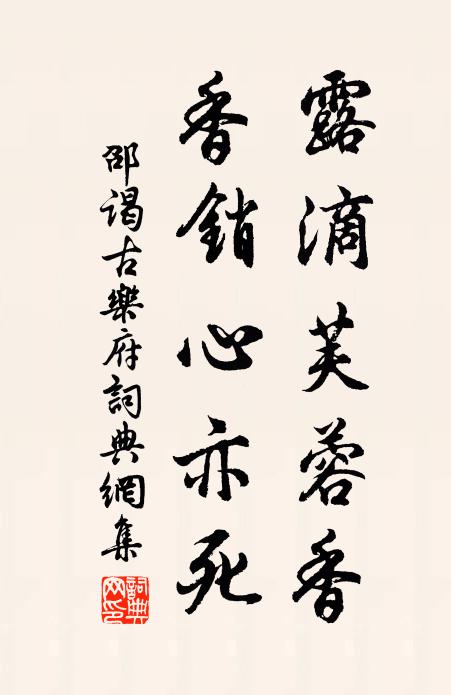 露滴芙蓉香
香銷心亦死
邵謁古樂府詞典網集
詞典網印